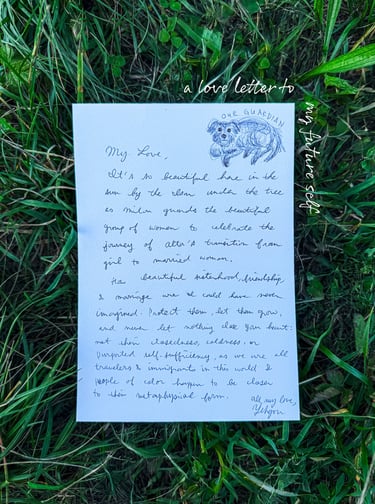 a love letter to
my future self
OUR GUARDIAN
My Love,
It's so beautiful here in the
sun by the river under the tree
as guards the beautiful
group of women to celebrate the
journey of transition from
girl to married woman.
beautiful sisterhood, friendship
& marriage we could have never
imagined. Protect them, let them grow,
and never let nothing close your heart:
not their closedness, coldness, or
self-sufficiency, as we are all
travelers & immigrants in this world &
people of color happen to be closer
to their metaphysical form.
All my love,